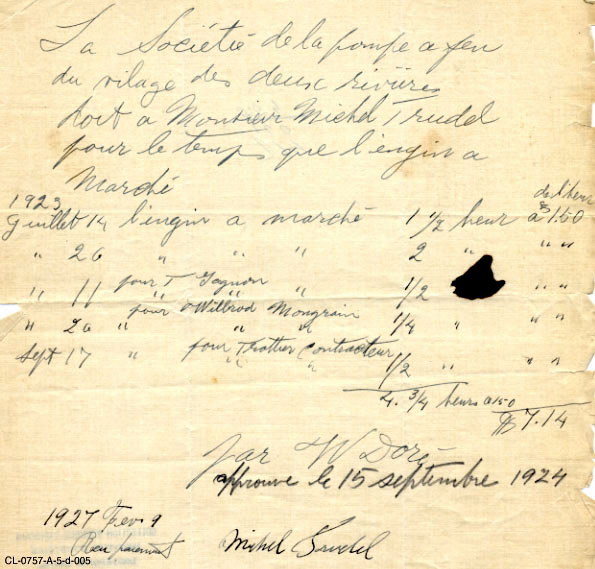 La Sociétié de la pompe a feu
du vilage des deux rivières
doit a Monsieur Michel Trudel
pour le temps que l'engin a
Marché
1923 de l'heur
Guillet 14 l'engin a marché 1 1/2 heur a $1.50
" 26 " " " 2 " " "
" 11 pour T Gagnon " 1/2 " "
" 20 " pour Wilbrod Mongrain " 1/4 " " "
Sept 17 " pour Trottier Contracteur " 1/2 " " "
4. 3/4 heurs a 1.50
$7.14
par W Doré
approuvé le 15 septembre 1924
1927 Fev 9
Reçu paiement Michel Trudel
CL-0757-A-5-d-005